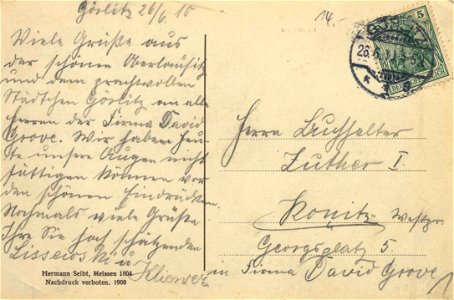 Görlitz 26/6. 10
14.-
Viele Grüße aus
der schönen Oberlausitz
und dem prachtvollen
Städtchen Görlitz an alle
Herren der Firma David
Grove. Wir haben heu-
te unsere Augen nicht
sättigen können vor
den schönen Eindrücken.
Nochmals viele Grüße
Ihre Sie hoch schätzenden
u. Kliewer
Hermann Seibt, Meissen 1804
Nachdruck verboten. 1908
5
Herrn Buchhalter
Luther I
Konitz Westpr.
Georgsplatz 5
in Firma David Grove